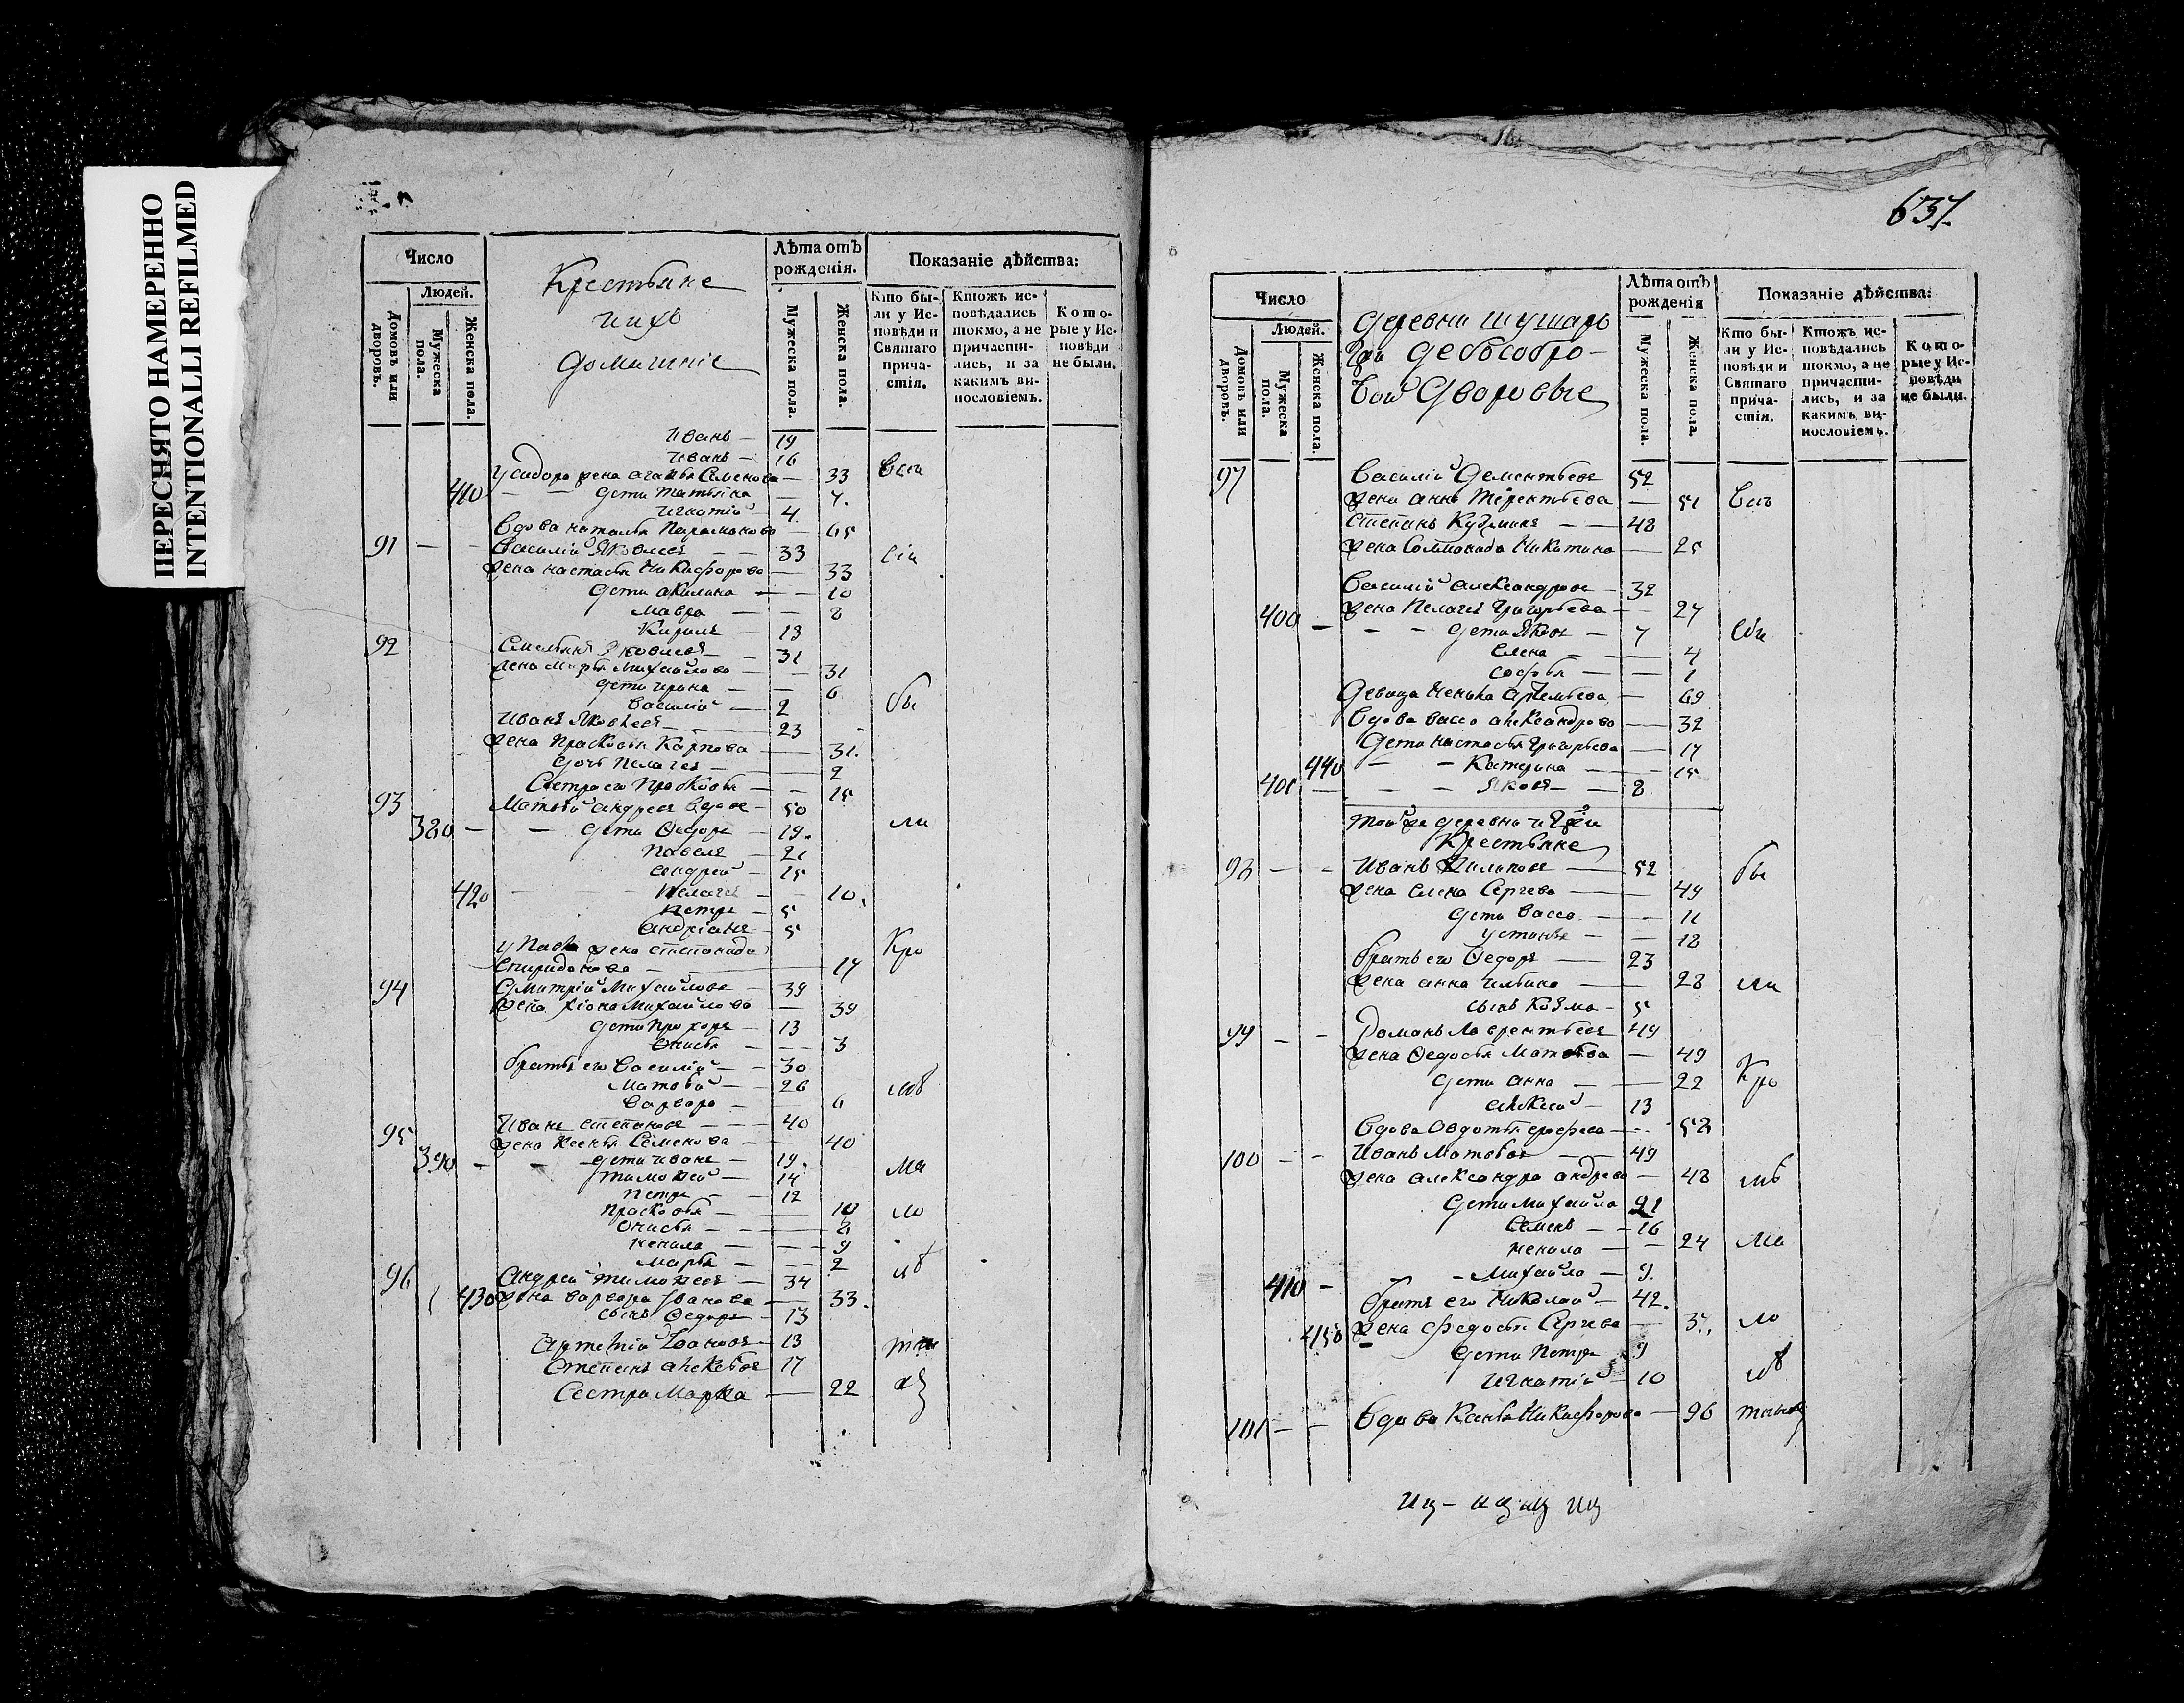 ПЕРЕСНЯТО НАМЕРЕННО
INTENTIONALLI REFILMED
Число
Людей.
Домовъ или дворовъ.
Мужеска пола.
Женска пола.
Крестьяне
ихъ
домашніе
Лѣта отъ рожденія.
Мужеска пола.
Женска пола.
Показаніе дѣйства:
Кто были у Исповѣди и Святаго причастія.
Ктожъ исповѣдались токмо, а не причастились, и за какимъ винословіемъ.
Которые у Исповѣди не были.
Иванъ — 19
Иванъ — 16
у Сидора жена Агафья Семенова — 33
410 — — дети Татьяна — 7.
Игнатій — 4.
вдова Наталья Парамонова — 65
91 — — Василій Яковлевъ — — 33
жена Настасья Никифорова — 33
дети Акилина — — 10
Мавра — — 8
Кирила — 13
92 Емельянъ Яковлевъ — 31
жена Марья Михайлова — — 31
дети Ирина — — 6
Василій — 2
Иванъ Яковлевъ — 23
жена Прасковья Карпова — 31.
дочь Пелагея — — 2
Сестра его Прасковья — — 15
93 Матвѣй Андреевъ вдовъ — 50
380 — — дети Ѳедоръ — 19.
Павелъ — 21
Андрей — 15
420 — Пелагея — — 10.
Петръ — 5
Андріанъ — 5
у Павла жена Степанида
Спиридонова — 17
94 Дмитрій Михайловъ — 39
жена Хіона Михайлова — 39
дети Прохоръ — 13
Онисья — — 3
братья его Василій — — 30
Матвѣй — — 26
Варвара — — 6
95 Иванъ Степановъ — — 40
жена Ксенья Семенова — — 40
390 — — дети Иванъ — 19.
Тимофей — 14
Петръ — — 12
Прасковья — — 10
Онисья — — 8
Ненила — — — 9
Марья — — — 2
96 Андрей Тимофеевъ — 34
430 жена Варвара Иванова — 33.
сынъ Ѳедоръ — 13
Артемій Ивановъ — 13
Степанъ Алексѣевъ 17
Сестра Марья — 22
637.
Число
Людей.
Домовъ или дворовъ.
Мужеска пола.
Женска пола.
деревни Шушаръ
Дворовые
Лѣта отъ рожденія
Мужеска пола.
Женска пола.
Показаніе дѣйства:
Кто были у Исповѣди и Святаго причастія.
Ктожъ исповѣдались токмо, а не причастились, и за какимъ винословіемъ.
Которые у Исповѣди не были.
97 Василій Дементьевъ 52
жена Анна Терентьева — 51
Степанъ Кузминъ — — 48
жена Соломонида Никитина — 25
Василій Александровъ — 32
жена Пелагея Григорьева — — 27
400 — — — дети Яковъ — 7
Елена — — 4
Софья — — 1
девица Ненила Артемьева — 69
вдова Васса Александрова — 32
дети Настасья Григорьева — 17
440 — — Катерина — — 15
401 — — — Яковъ — — 8
той же деревни
Крестьяне
98 — — Иванъ — 52
жена Елена Сергева — — 49
дети Васса — — 11
Устинья — — 18
братъ его Ѳедоръ — 23
жена Анна Ильина — — 28
сынъ Козма — 5
99 — — Романъ Лаврентьевъ 49
жена Ѳедосья Матвѣва — 49
дети Анна — — 22
Алексей — 13
вдова Овдотья — — 58
100 — — Иванъ Матвѣевъ — — 49
жена Александра Андрева — 48
дети Михайла 21
Семенъ — — 16
Ненила — — 24
410 — — — Михайло — 9.
братъ его Николай — 42.
450 жена Ѳедосья Сергева —
дети Петръ 9
Игнатій — 10
101 — — вдова Никифорова — 96